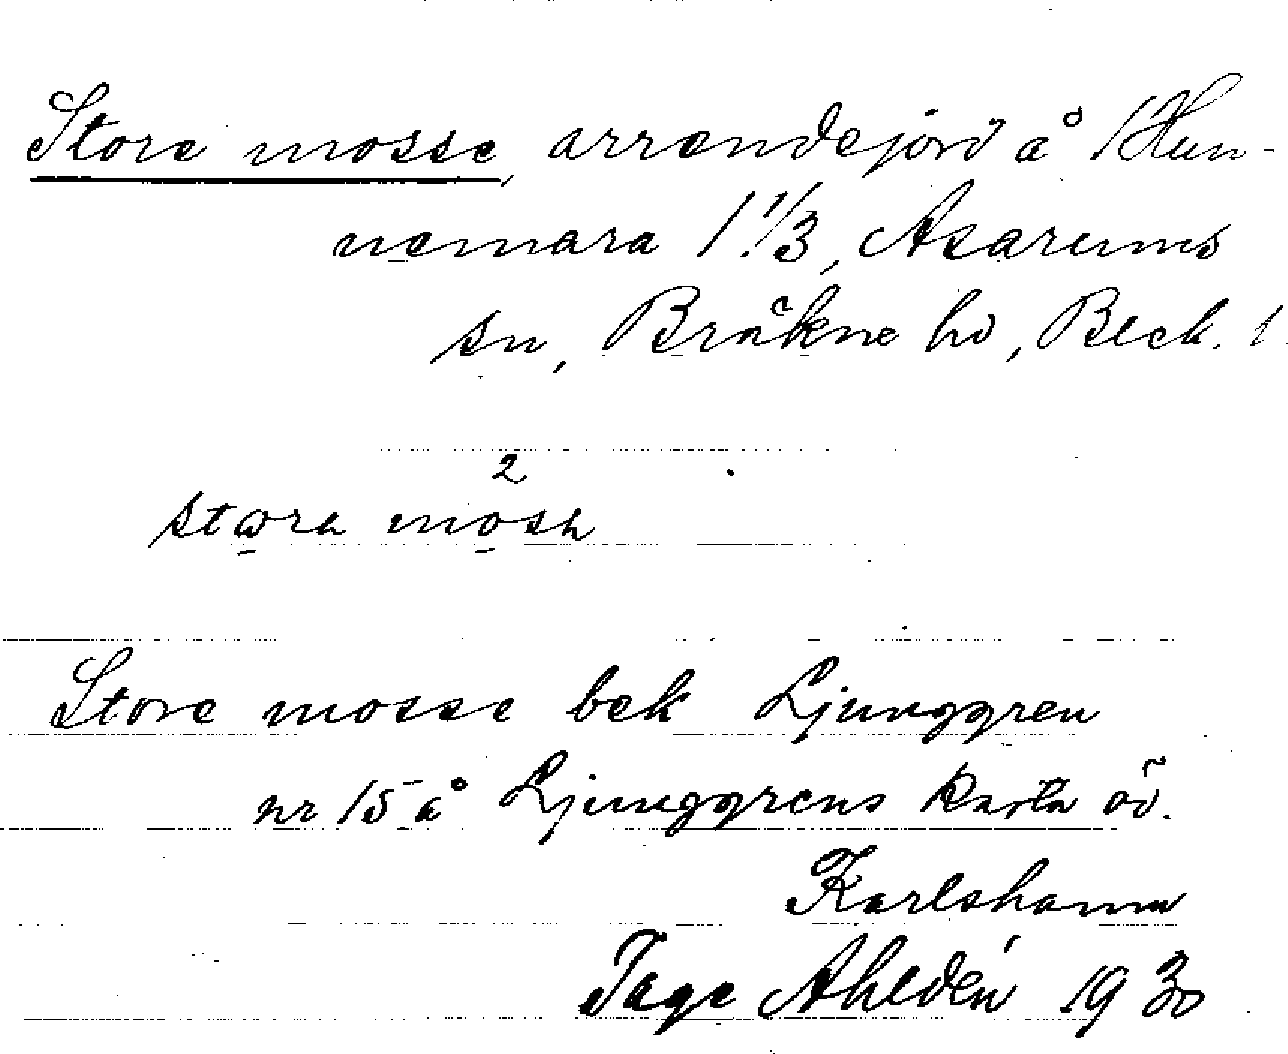 Store mosse, arrendejord å Hun-
nemara 1 1/3, Asarums
sn, Bräkne hd, Blek. l.
2
store mosa
Store mosse bek Ljunggren
nr 15 å Ljunggrens karta öv.
Karlshamn
Tage Ahldén 1930